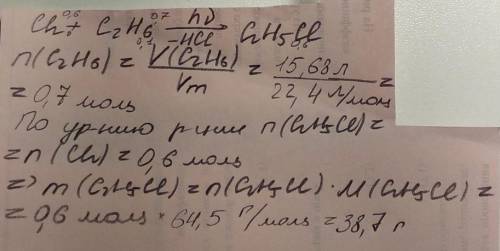 0,6 0,7 hν
Cl₂ + C₂H₆ → C₂H₅Cl
0,1 -HCl 0,6
n(C₂H₆) = V(C₂H₆) / Vm = 15,68 л / 22,4 л/моль =
= 0,7 моль
По ур-нию р-ции n(C₂H₅Cl) =
= n(Cl₂) = 0,6 моль
=> m(C₂H₅Cl) = n(C₂H₅Cl) · M(C₂H₅Cl) =
= 0,6 моль · 64,5 г/моль = 38,7 г